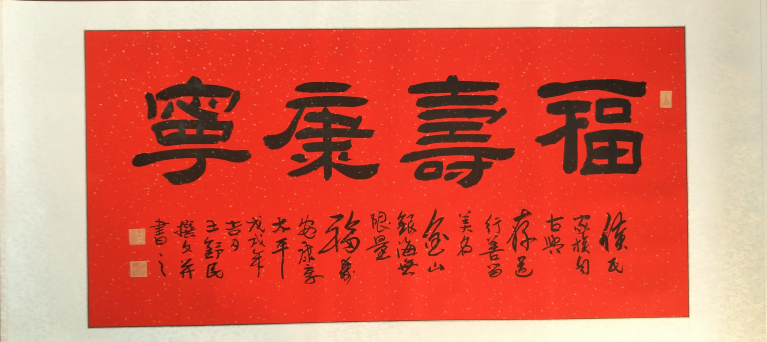 福壽康寧
侯氏
家族自
古興
存道
行善留
美名
金山
銀海無
限量
福壽
安康享
太平
戊戌年
吉月
王舒民
撰文并
書之